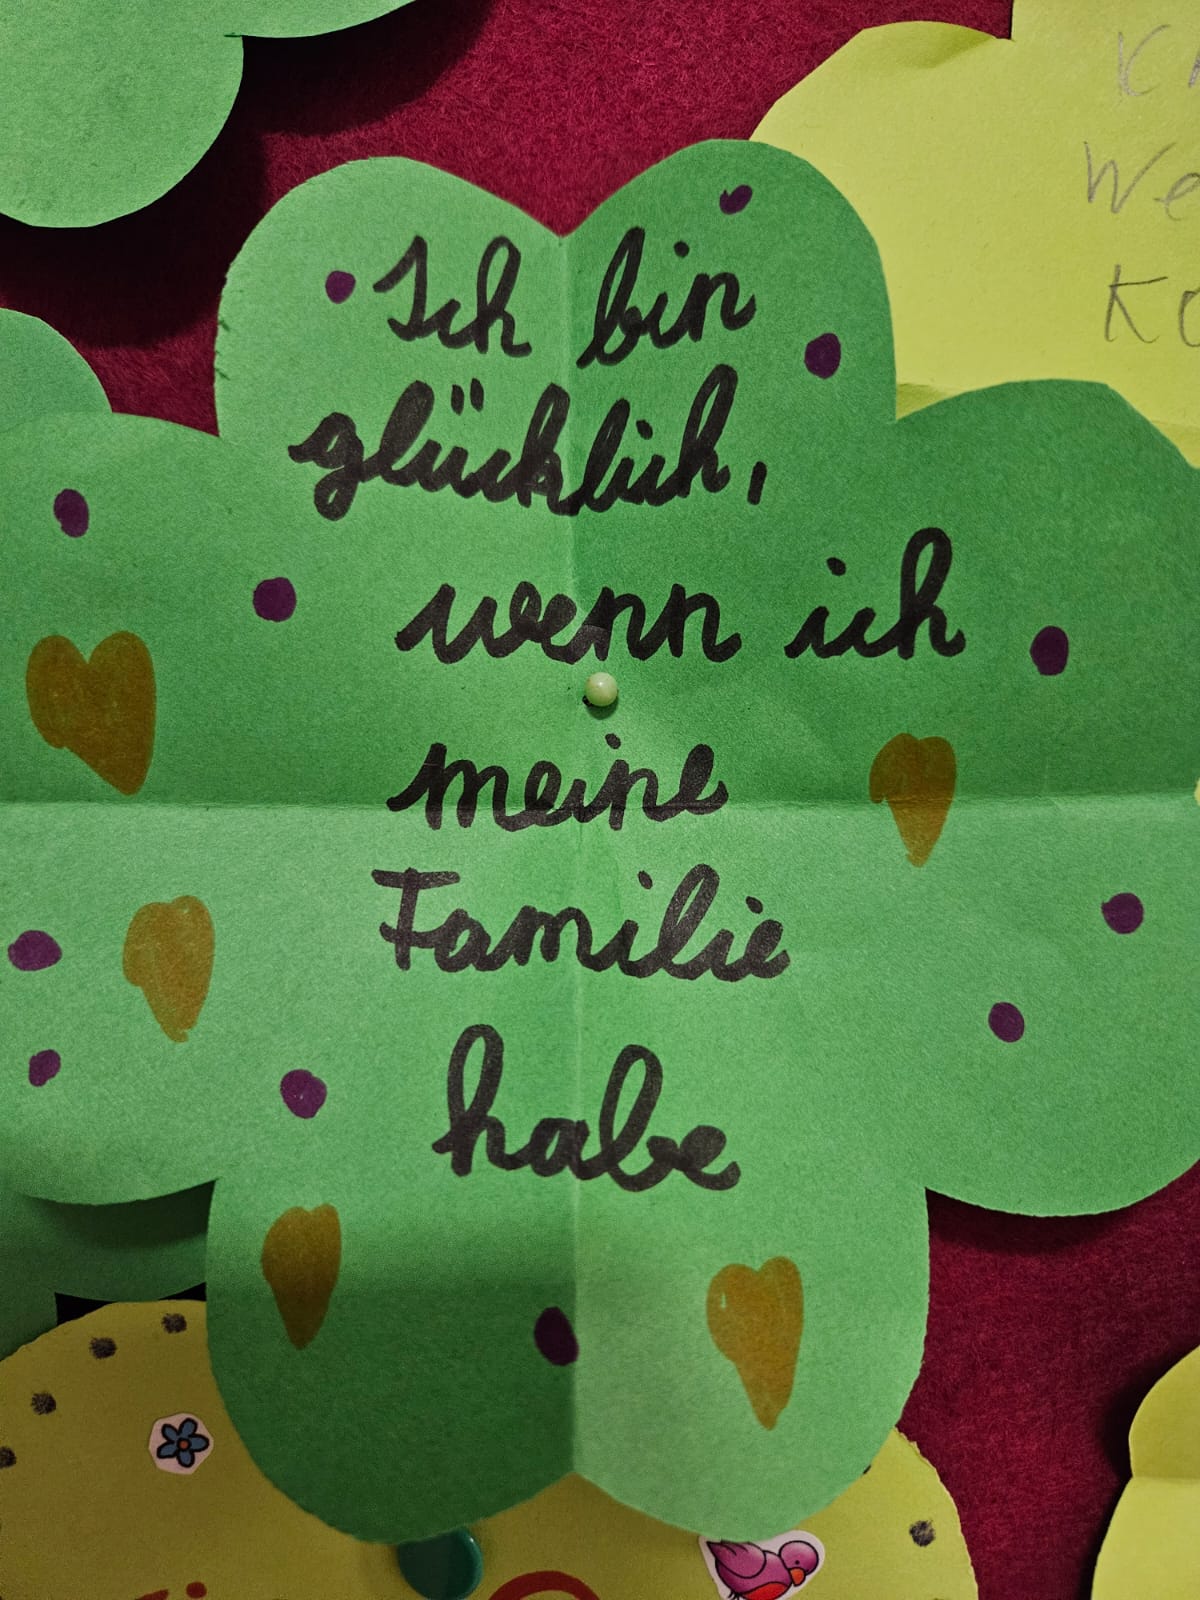 Ich bin
glücklich,
wenn ich
meine
Familie
habe